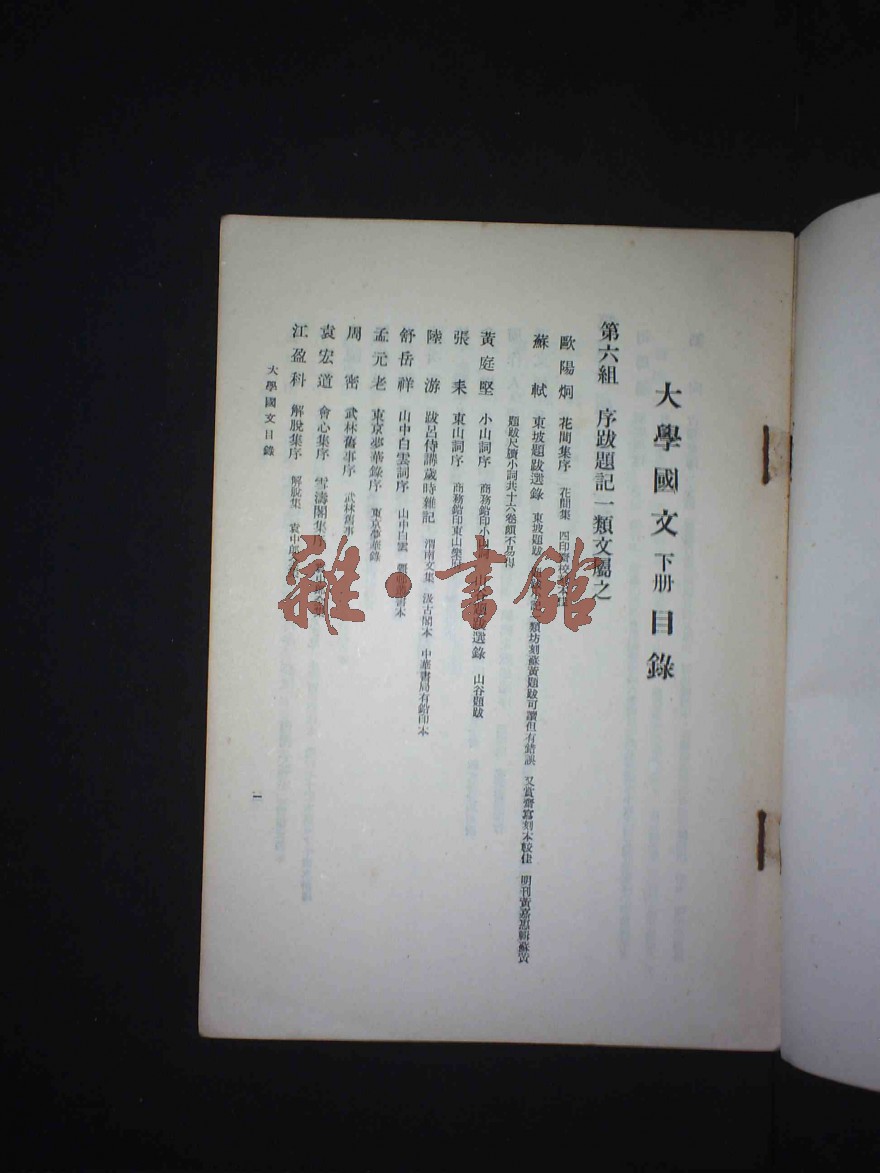 大學國文 下册 目錄
第六組 序跋題記一類文屬之
歐陽炯 花間集序 花間集 四印齋
蘇軾 東坡題跋選錄 東坡題跋 類坊刻蘇黃題跋可讀但有錯誤 又賞齋寫刻本較佳 明刊黃嘉惠輯蘇黃
題跋尺牘小詞共十六卷頗不易得
黃庭堅 小山詞序 商務鉛印小山詞 山谷題跋選錄 山谷題跋
張耒 東山詞序 商務鉛印東山樂府
陸游 跋呂侍講歲時雜記 渭南文集 汲古閣本 中華書局有鉛印本
舒岳祥 山中白雲詞序 山中白雲 本
孟元老 東京夢華錄序 東京夢華錄
周密 武林舊事序 武林舊事
袁宏道 會心集序 雪濤閣集序
江盈科 解脫集序 解脫集 袁中郎
大學國文目錄
一
雜·書館